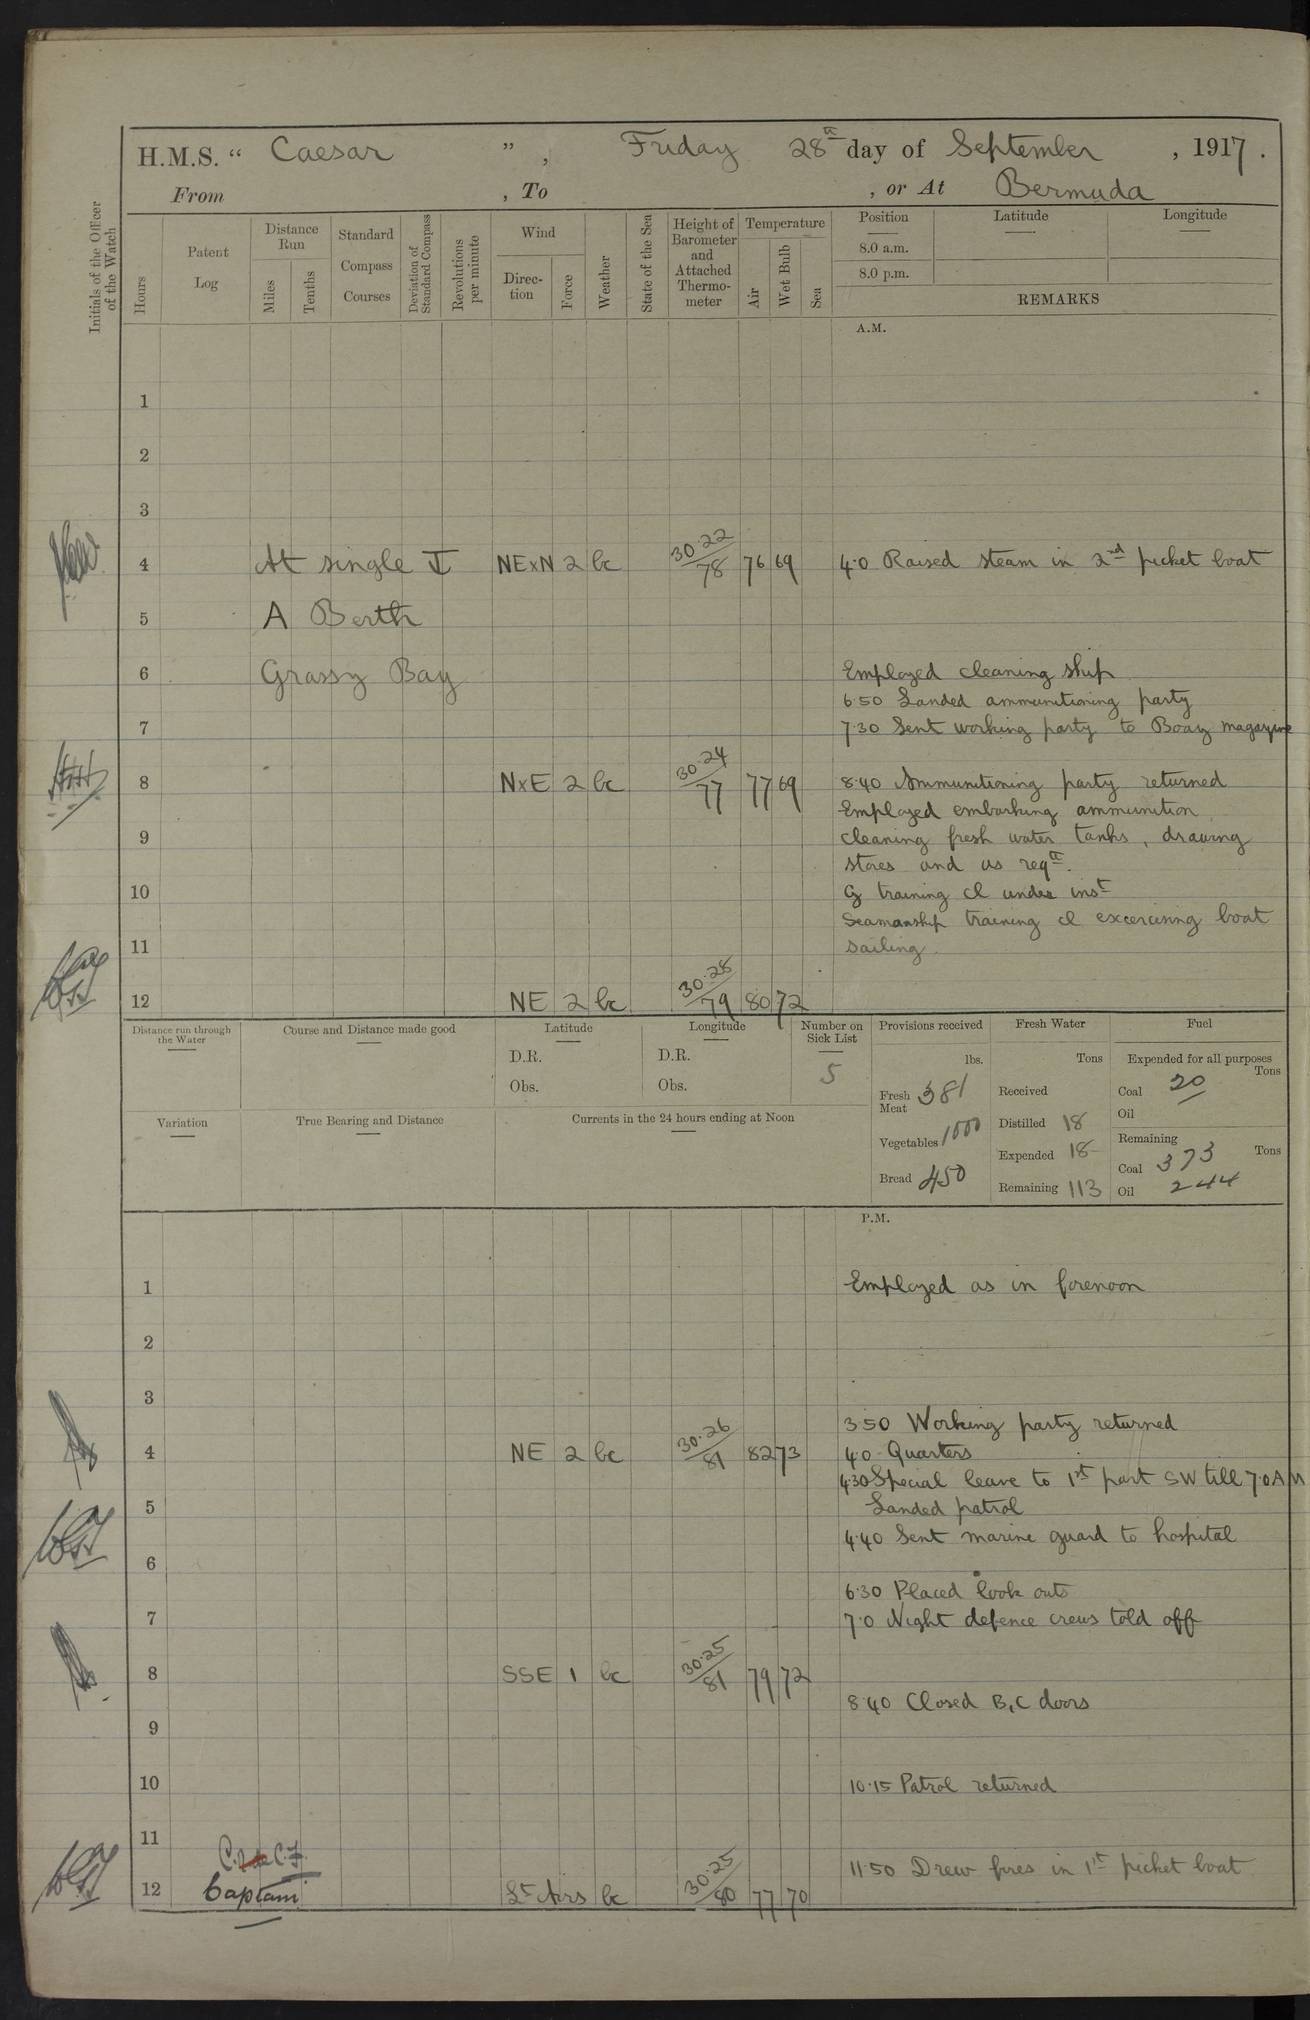 H.M.S. “ Caesar ” , Friday 28th day of September , 1917 .
From , To , or At Bermuda
Initials of the Officer of the Watch
Hours
Patent Log
Distance Run
Miles
Tenths
Standard Compass Courses
Deviation of Standard Compass
Revolutions per minute
Wind
Direc-tion
Force
Weather
State of the Sea
Height of Barometer and Attached Thermo-meter
Temperature
Air
Wet Bulb
Sea
Position
8.0 a.m.
8.0 p.m.
Latitude
Longitude
REMARKS
A.M.
1
2
3
4 At single NExN 2 bc 30.22/78 76 69 4.0 Raised steam in 2nd picket boat
5 A Berth
6 Grassy Bay Employed cleaning ship
6.50 Landed ammunitioning party
7 7.30 Sent working party to Boaz magazine
8 NxE 2 bc 30.24/77 77 69 8.40 Ammunitioning party returned
Employed embarking ammunition
9 cleaning fresh water tanks, drawing
stores and as reqd.
10 G training cl under inst
Seamanship training cl excercising boat
11 sailing
12 NE 2 bc 30.28/79 80 72
Distance run through the Water
Course and Distance made good
Latitude
D.R.
Obs.
Longitude
D.R.
Obs.
Number on Sick List
5
Provisions received
lbs.
Fresh Meat 381
Vegetables 1000
Bread 450
Fresh Water
Tons
Received
Distilled 18
Expended 18
Remaining 113
Fuel
Expended for all purposes
Tons
Coal 20
Oil
Remaining
Tons
Coal 373
Oil 244
Variation
True Bearing and Distance
Currents in the 24 hours ending at Noon
P.M.
1 Employed as in forenoon
2
3
3.50 Working party returned
4 NE 2 bc 30.26/81 82 73 4.0 Quarters
4.30 Special leave to 1st part SW till 7.0 AM
5 Landed patrol
4.40 Sent marine guard to hospital
6
6.30 Placed look outs
7 7.0 Night defence crews told off
8 SSE 1 bc 30.25/81 79 72
8.40 Closed B, C doors
9
10 10.15 Patrol returned
11
11.50 Drew fires in 1st picket boat
12 Captain Lt Airs bc 30.25/80 77 70